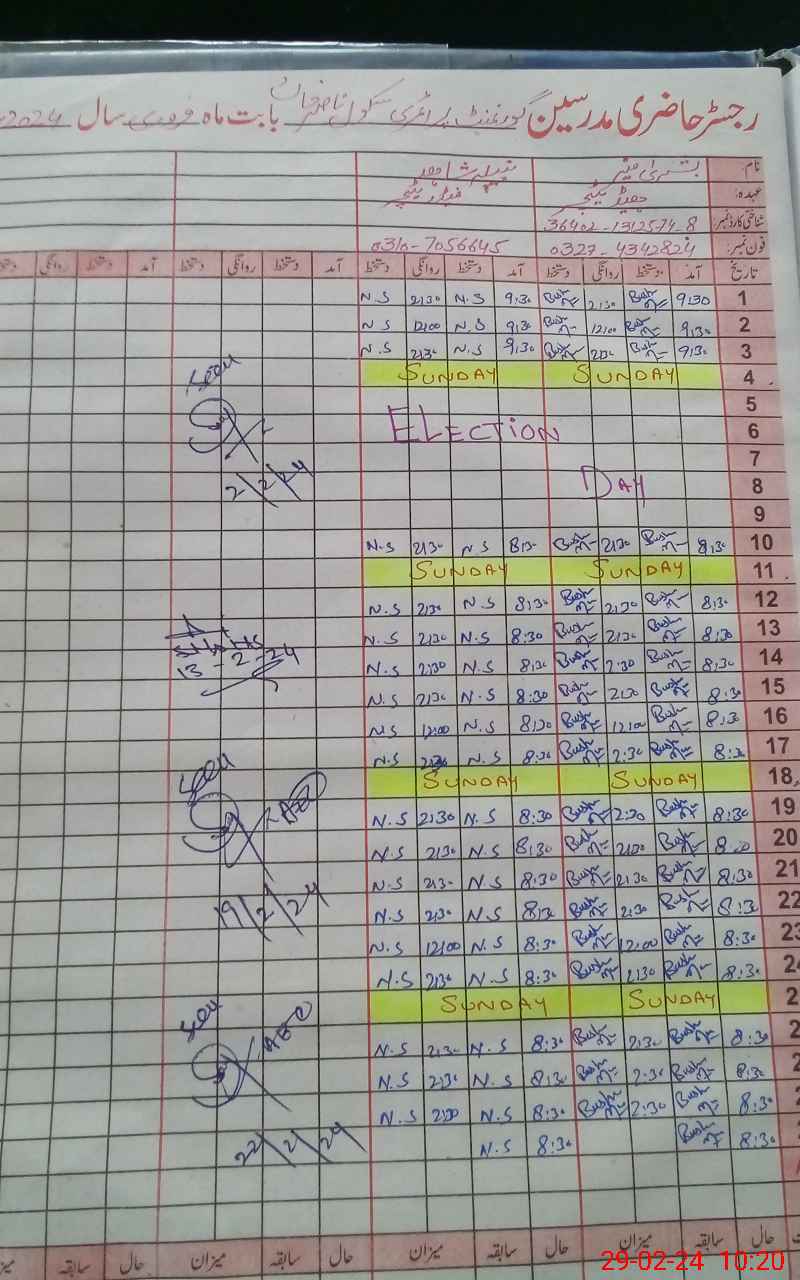 رجسٹر حاضری مدرسین گورنمنٹ پرائمری سکول ناصر خان بابت ماہ فروری سال 2024
نام:
عہدہ: ہیڈ ٹیچر
شناختی کارڈ نمبر: 36402-1312574-8
فون نمبر: 0327-4342824 0310-7056645
تاریخ آمد دستخط روانگی دستخط آمد دستخط روانگی دستخط آمد دستخط روانگی دستخط آمد دستخط روانگی دستخط
1 9:30 Bush 2:30 Bush 9:30 N.S 2:30 N.S
2 9:30 Bush 12:00 Bush 9:30 N.S 12:00 N.S
3 9:30 Bush 2:30 Bush 9:30 N.S 2:30 N.S
4 SUNDAY SUNDAY
Seen
5
6 ELECTION
7
8 DAY
2/2/24
9
10 8:30 Bush 2:30 Bush 8:30 N.S 2:30 N.S
11 SUNDAY SUNDAY
12 8:30 Bush 2:30 Bush 8:30 N.S 2:30 N.S
13 8:30 Bush 2:30 Bush 8:30 N.S 2:30 N.S
13-2-24
14 8:30 Bush 2:30 Bush 8:30 N.S 2:30 N.S
15 8:30 Bush 2:30 Bush 8:30 N.S 2:30 N.S
16 8:30 Bush 12:00 Bush 8:30 N.S 12:00 N.S
17 8:30 Bush 2:30 Bush 8:30 N.S 2:30 N.S
18 SUNDAY SUNDAY
Seen
19 8:30 Bush 2:30 Bush 8:30 N.S 2:30 N.S
AEO
20 8:30 Bush 2:30 Bush 8:30 N.S 2:30 N.S
21 8:30 Bush 2:30 Bush 8:30 N.S 2:30 N.S
22 8:30 Bush 2:30 Bush 8:30 N.S 2:30 N.S
19/2/24
23 8:30 Bush 12:00 Bush 8:30 N.S 12:00 N.S
2 8:30 Bush 2:30 Bush 8:30 N.S 2:30 N.S
2 SUNDAY SUNDAY
Seen
AEO
2 8:30 Bush 2:30 Bush 8:30 N.S 2:30 N.S
2 8:30 Bush 2:30 Bush 8:30 N.S 2:30 N.S
2 8:30 Bush 2:30 Bush 8:30 N.S 2:30 N.S
8:30 Bush 8:30 N.S
22/2/24
حال سابقہ میزان حال سابقہ میزان حال سابقہ میزان حال سابقہ
29-02-24 10:20